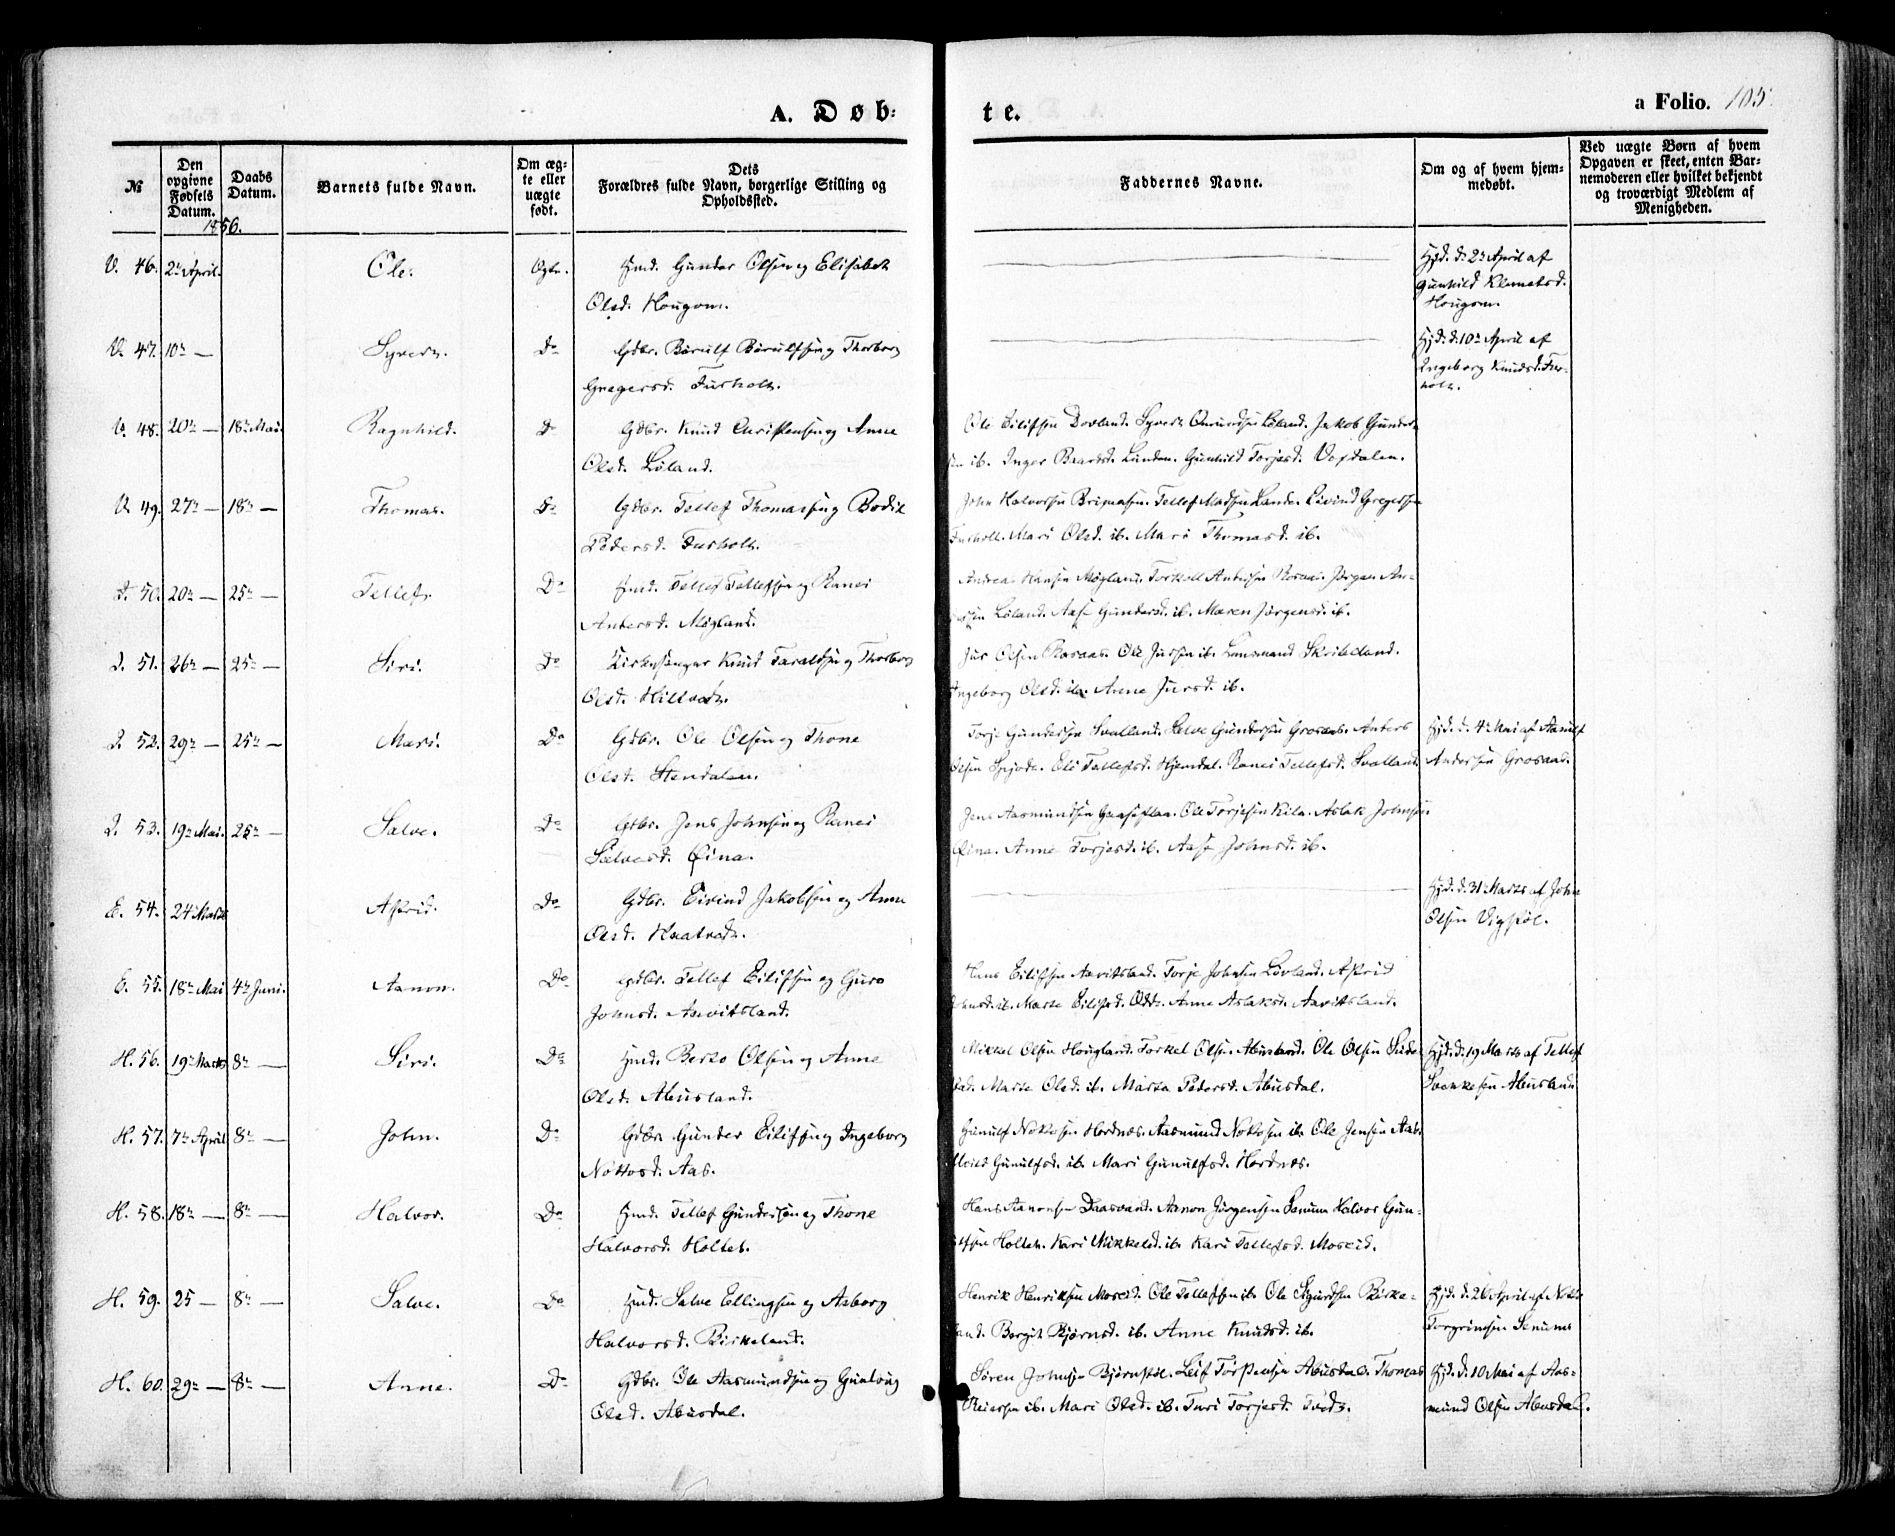 A. Døb:
te.
a Folio. 105.
№
Den opgivne Fødsels Datum.
Daabs Datum.
Barnets fulde Navn.
Om ægte eller uægte født.
Dets Forældres fulde Navn, borgerlige Stilling og Opholdssted.
Faddernes Navne.
Om og af hvem hjemmedøbt.
Ved uægte Børn af hvem Opgaven er skeet, enten Barnemoderen eller hvilket bekjendt og troværdigt Medlem af Menigheden.
1856.
V. 46. 2n April. Ole. Ægte. Hmd. Gunder Olsen og Elisabet
Olsd. Hougom.
Hjd. d. 2n April af
Gunhild Klemetsd.
Hougom.
V. 47. 10n — Syvert. Do Gdbr. Børulf Børulfsen og Thorborg
Gregersd. Fusholt.
Hjd. d. 10n April af
Ingeborg Knudsd. Fus-
holt.
V. 48. 20n — 18n Mai. Ragnhild. Do Gdbr. Knud Christensen og Anne
Olsd. Løland.
Ole Eilifsen Dovland. Syvert Omundsen Løland. Jakob Gunder-
sen ib. Inger Baardsd. Lunden. Gunhild Torjesd. Vojdalen.
V. 49. 27n — 18n — Thomas. Do Gdbr. Tellef Thomassen og Bodil
Pedersd. Fusholt.
John Halvorsen Tellef Madsen Lande. Eivind Gregersen
Fusholt. Mari Olsd. ib. Mari Thomasd. ib.
50. 20n — 25n — Tellef. Do Hmd. Tellef Tellefsen og Ranei
Antersd. Møgland.
Andreas Hansen Møgland. Torkell Jørgen An-
Løland. Aase Gundersd. ib. Maren Jørgensd. ib.
51. 26n — 25n — Siri. Do Kirkesanger Knud Taraldsen og Thorborg
Olsd. Hillvatn.
Jur Olsen Rosaas. Ole Jursen ib. Lensmand Skribeland.
Ingeborg Olsd. ib. Anne Jursd. ib.
52. 29n — 25n — Mari. Do Gdbr. Ole Olsen og Thone
Olsd. Stendalen.
Torje Gundersen Svalland. Salve Gundersen Grosaas. Anters
Olsen Spjode. Eli Tellefsd. Hjemdal. Ranei Tellefsd. Svalland.
Hjd. d. 4n Mai af Aanulf
Andersen Grosaas.
53. 19n Mai. 25n — Salve. Do Gdbr. Jens Johnsen og Ranei
Salvesd. Øina.
Jens Aasmundsen Gaaseflaa. Ole Torjesen Kile. Aslak Johnsen
Øina. Anne Torjesd. ib. Aase Johnsd. ib.
E. 54. 24n Marts Astrid. Do Gdbr. Eivind Jakobsen og Anne
Olsd. Hvatvatn.
Hjd. d. 31n Marts af John
Olsen Vigstøl.
E. 55. 18n Mai 4n Juni. Aanon. Do Gdbr. Tellef Eilifsen og Guro
Johnsd. Aavitsland.
Hans Eilifsen Aavitsland. Torje Johnsen Lovland. Astrid
Johnsd. ib. Marte Eilifsd. Odde. Anne Aslaksd. Aavitsland.
H. 56. 19n Marts 8n — Siri. Do Hmd. Berto Olsen og Anne
Olsd. Abusland.
Mikkel Olsen Hougland. Torkel Olsen Abusland. Ole Olsen
Marte Olsd. ib. Marta Pedersd. Abusdal.
Hjd. d. 19 Marts af Tellef
Svenkesen Abusland.
H. 57. 7n April 8n — John. Do Gdbr. Gunder Eilifsen og Ingeborg
Nottosd. Aas.
Gunulf Nottosen Hordnæs. Aasmund Nottosen ib. Ole Jensen Aas.
Gunulfsd. ib. Mari Gunulfsd. Hordnæs.
H. 58. 18n — 8n — Halvor. Do Hmd. Tellef Gundersen og Thone
Halvorsd. Holtet.
Hans Aanonsen Daasvand. Aanon Jørgensen Senum Halvor Gun-
Holtet. Kari Mikkelsd. ib. Kari Tellefsd. Moseid.
H. 59. 25 — 8n — Salve. Do Hmd. Salve Ellingsen og Aaborg
Halvorsd. Birkeland.
Henrik Henriksen Moseid. Ole Tellefsen ib. Ole Sigurdsen Birke-
land. Bergit Bjørnsd. ib. Anne Knudsd. ib.
Hjd. d. 26 April af
Torgrimsen Senum.
H. 60. 29n — 8n — Anne. Do Gdbr. Ole Aasmundsen og Gunvoug
Olsd. Abusdal.
Søren Johnsen Bjørnstøl. Leif Torstensen Abusdal. Thomas
Reiersen ib. Mari Olsd. ib. Turi Torjesd. Tveit.
Hjd. d. 10 Mai af Aas-
mund Olsen Abusdal.